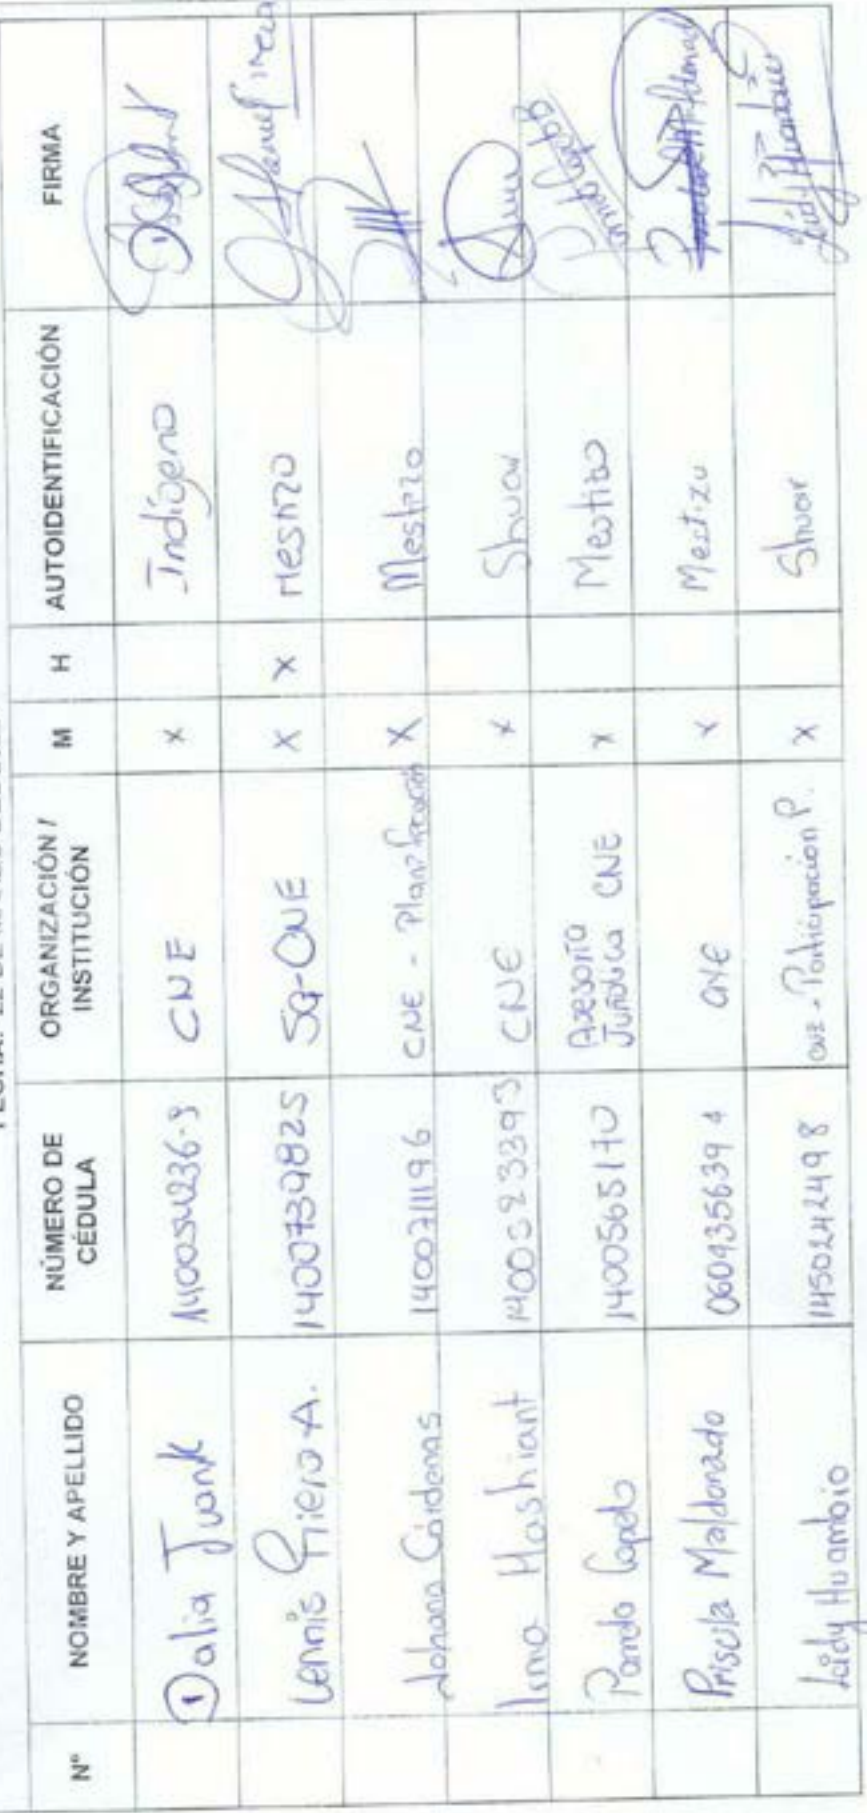 N° NOMBRE Y APELLIDO NÚMERO DE CÉDULA ORGANIZACIÓN / INSTITUCIÓN M H AUTOIDENTIFICACIÓN FIRMA
① Dalia Juank CNE X Indígena
Lennis A. 1400739825 Sg-CNE X X Mestizo
Johana Cárdenas 1400711196 CNE - Planificación X Mestizo
Irma Mashiant 1400523393 CNE X Shuar
1400565170 Asesoria Jurídica CNE X Mestizo
Priscila Maldonado 0604356394 CNE X Mestizo
Leidy Huambio 1450242498 CNE - Participacion P. X Shuar